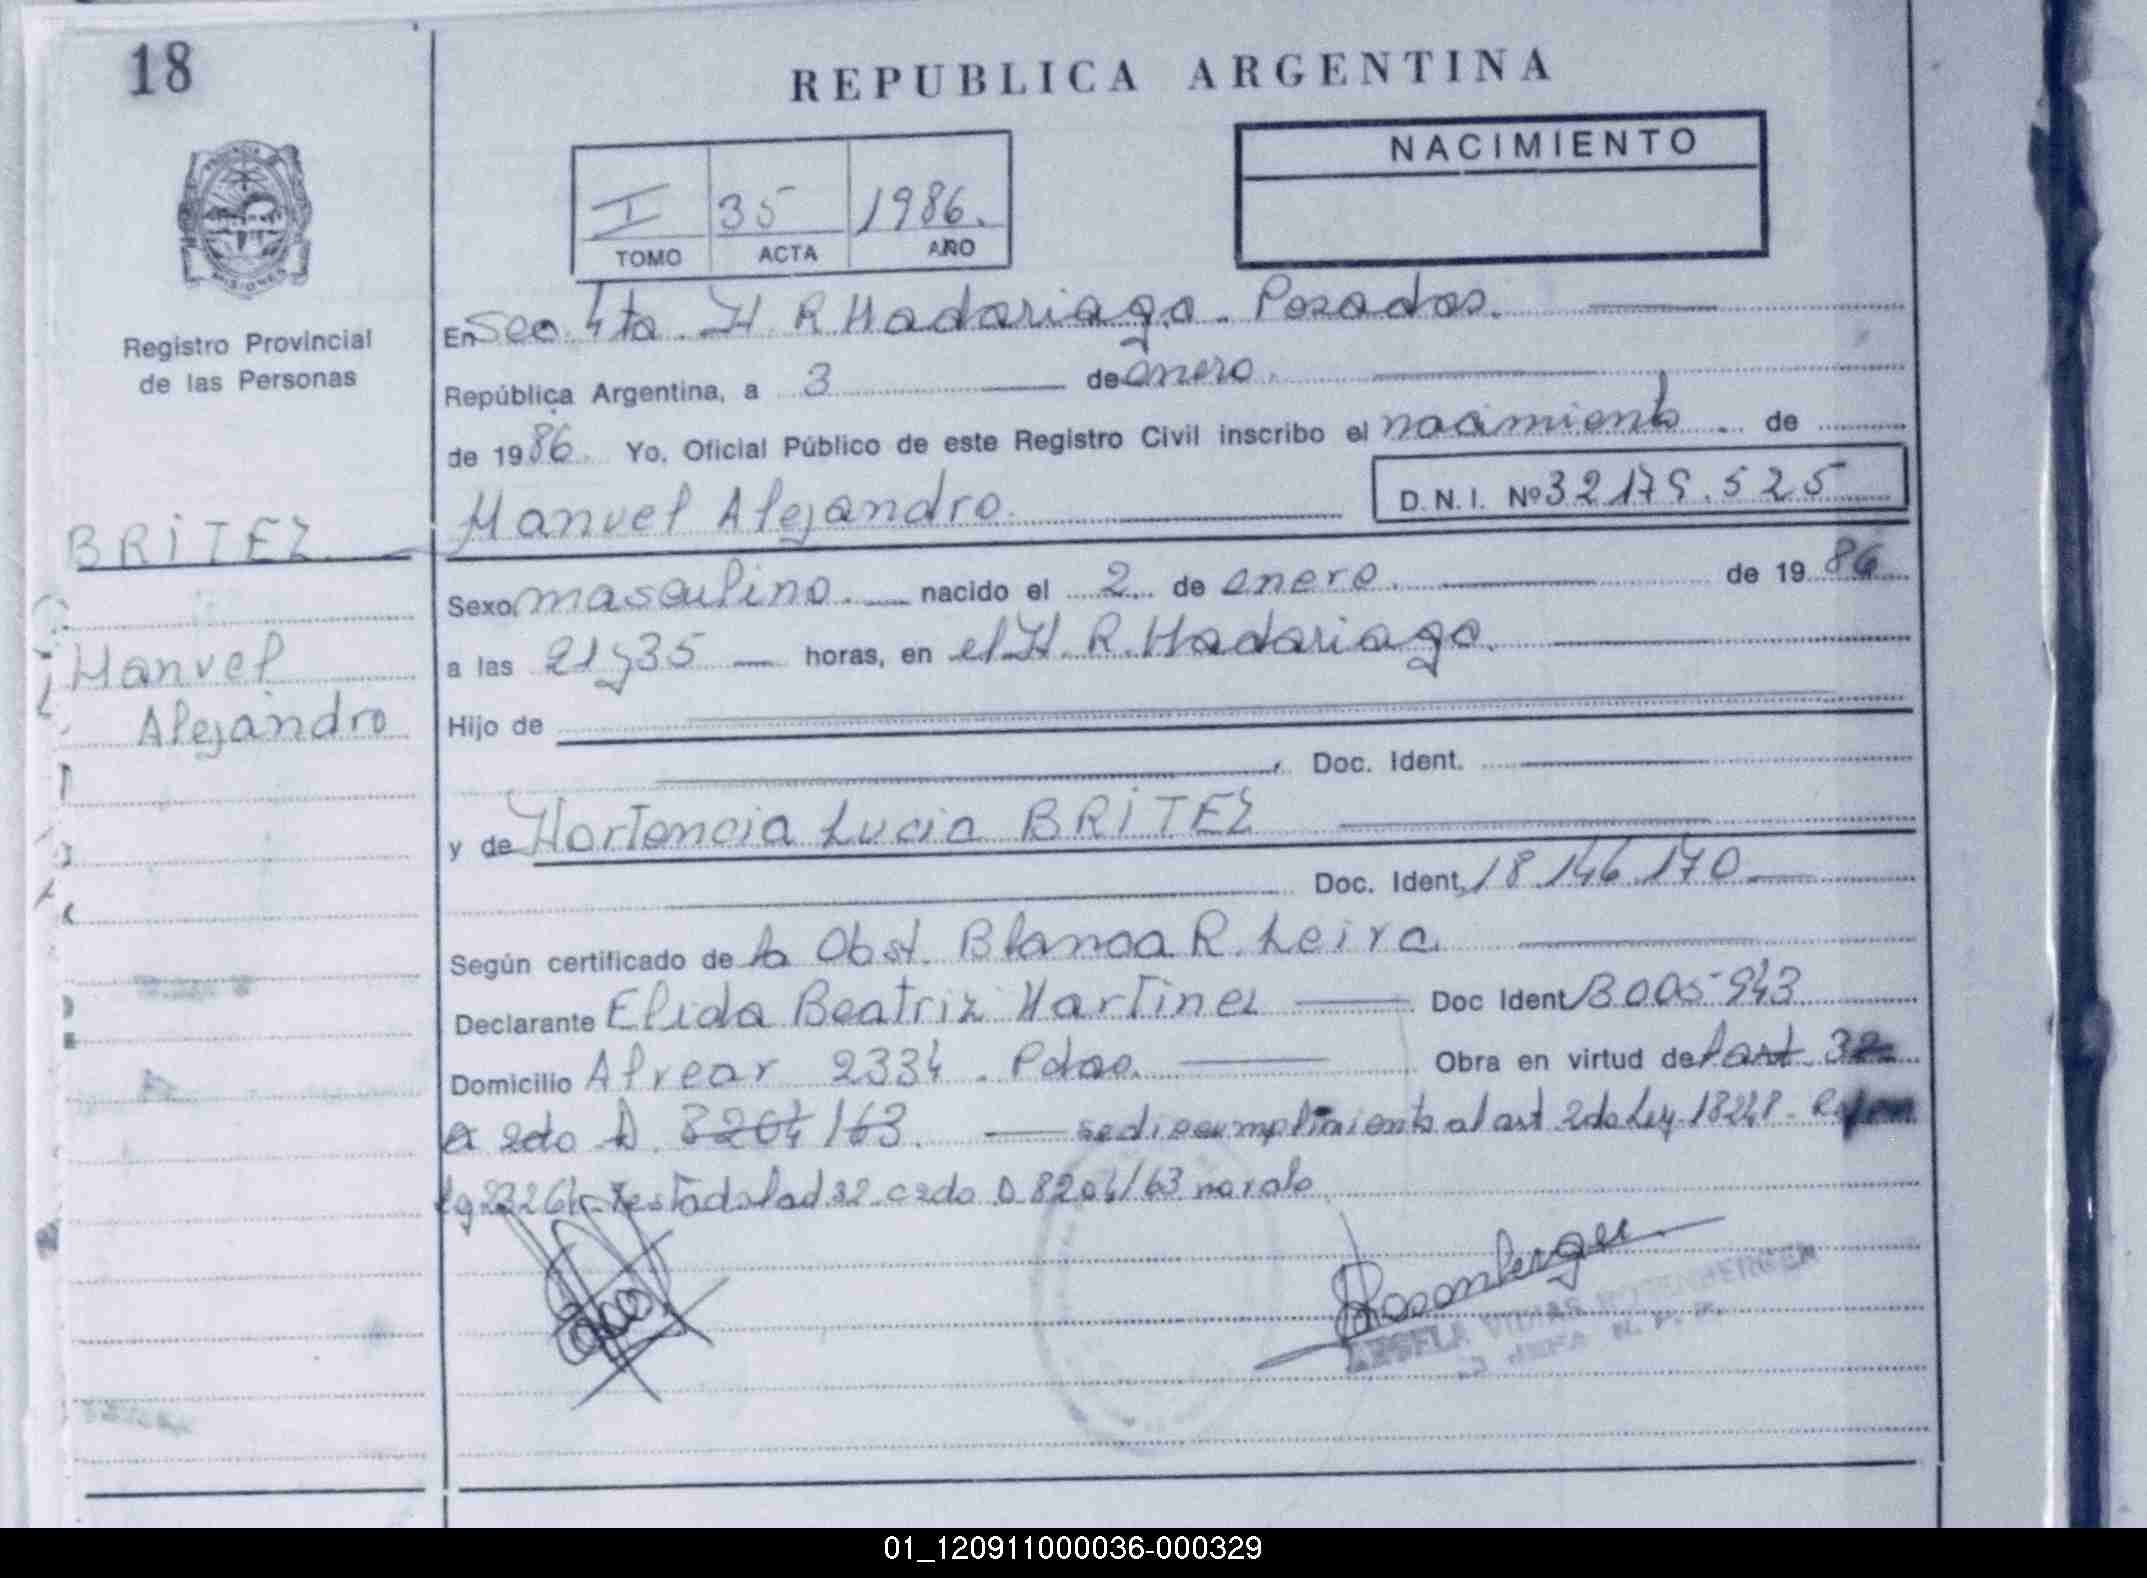 18
REPUBLICA ARGENTINA
NACIMIENTO
I 35 1986.
TOMO ACTA AÑO
Registro Provincial
de las Personas
En Sec 4ta. H. R Madariaga. Posadas.
República Argentina, a 3 de enero.
de 1986. Yo, Oficial Público de este Registro Civil inscribo el nacimiento de
Manuel Alejandro. D.N.I. Nº 32.179.525
BRITEZ
Manuel
Alejandro
Sexo masculino. nacido el 2 de enero. de 1986
a las 21 y 35 horas, en el H. R. Madariaga.
Hijo de
Doc. Ident.
y de Hortencia Lucia BRITEZ
Doc. Ident. 18.146.170
Según certificado de la Obst. Blanca R. Leiva.
Declarante Elida Beatriz Martinez Doc Ident
Domicilio Alvear 2334. Pdas. Obra en virtud de l art 32
2do D. 8204/63. se dio cumplimiento al art 2do Ley 18248.
23264 - Testado l ad 32 c 2do D 8204/63 no vale